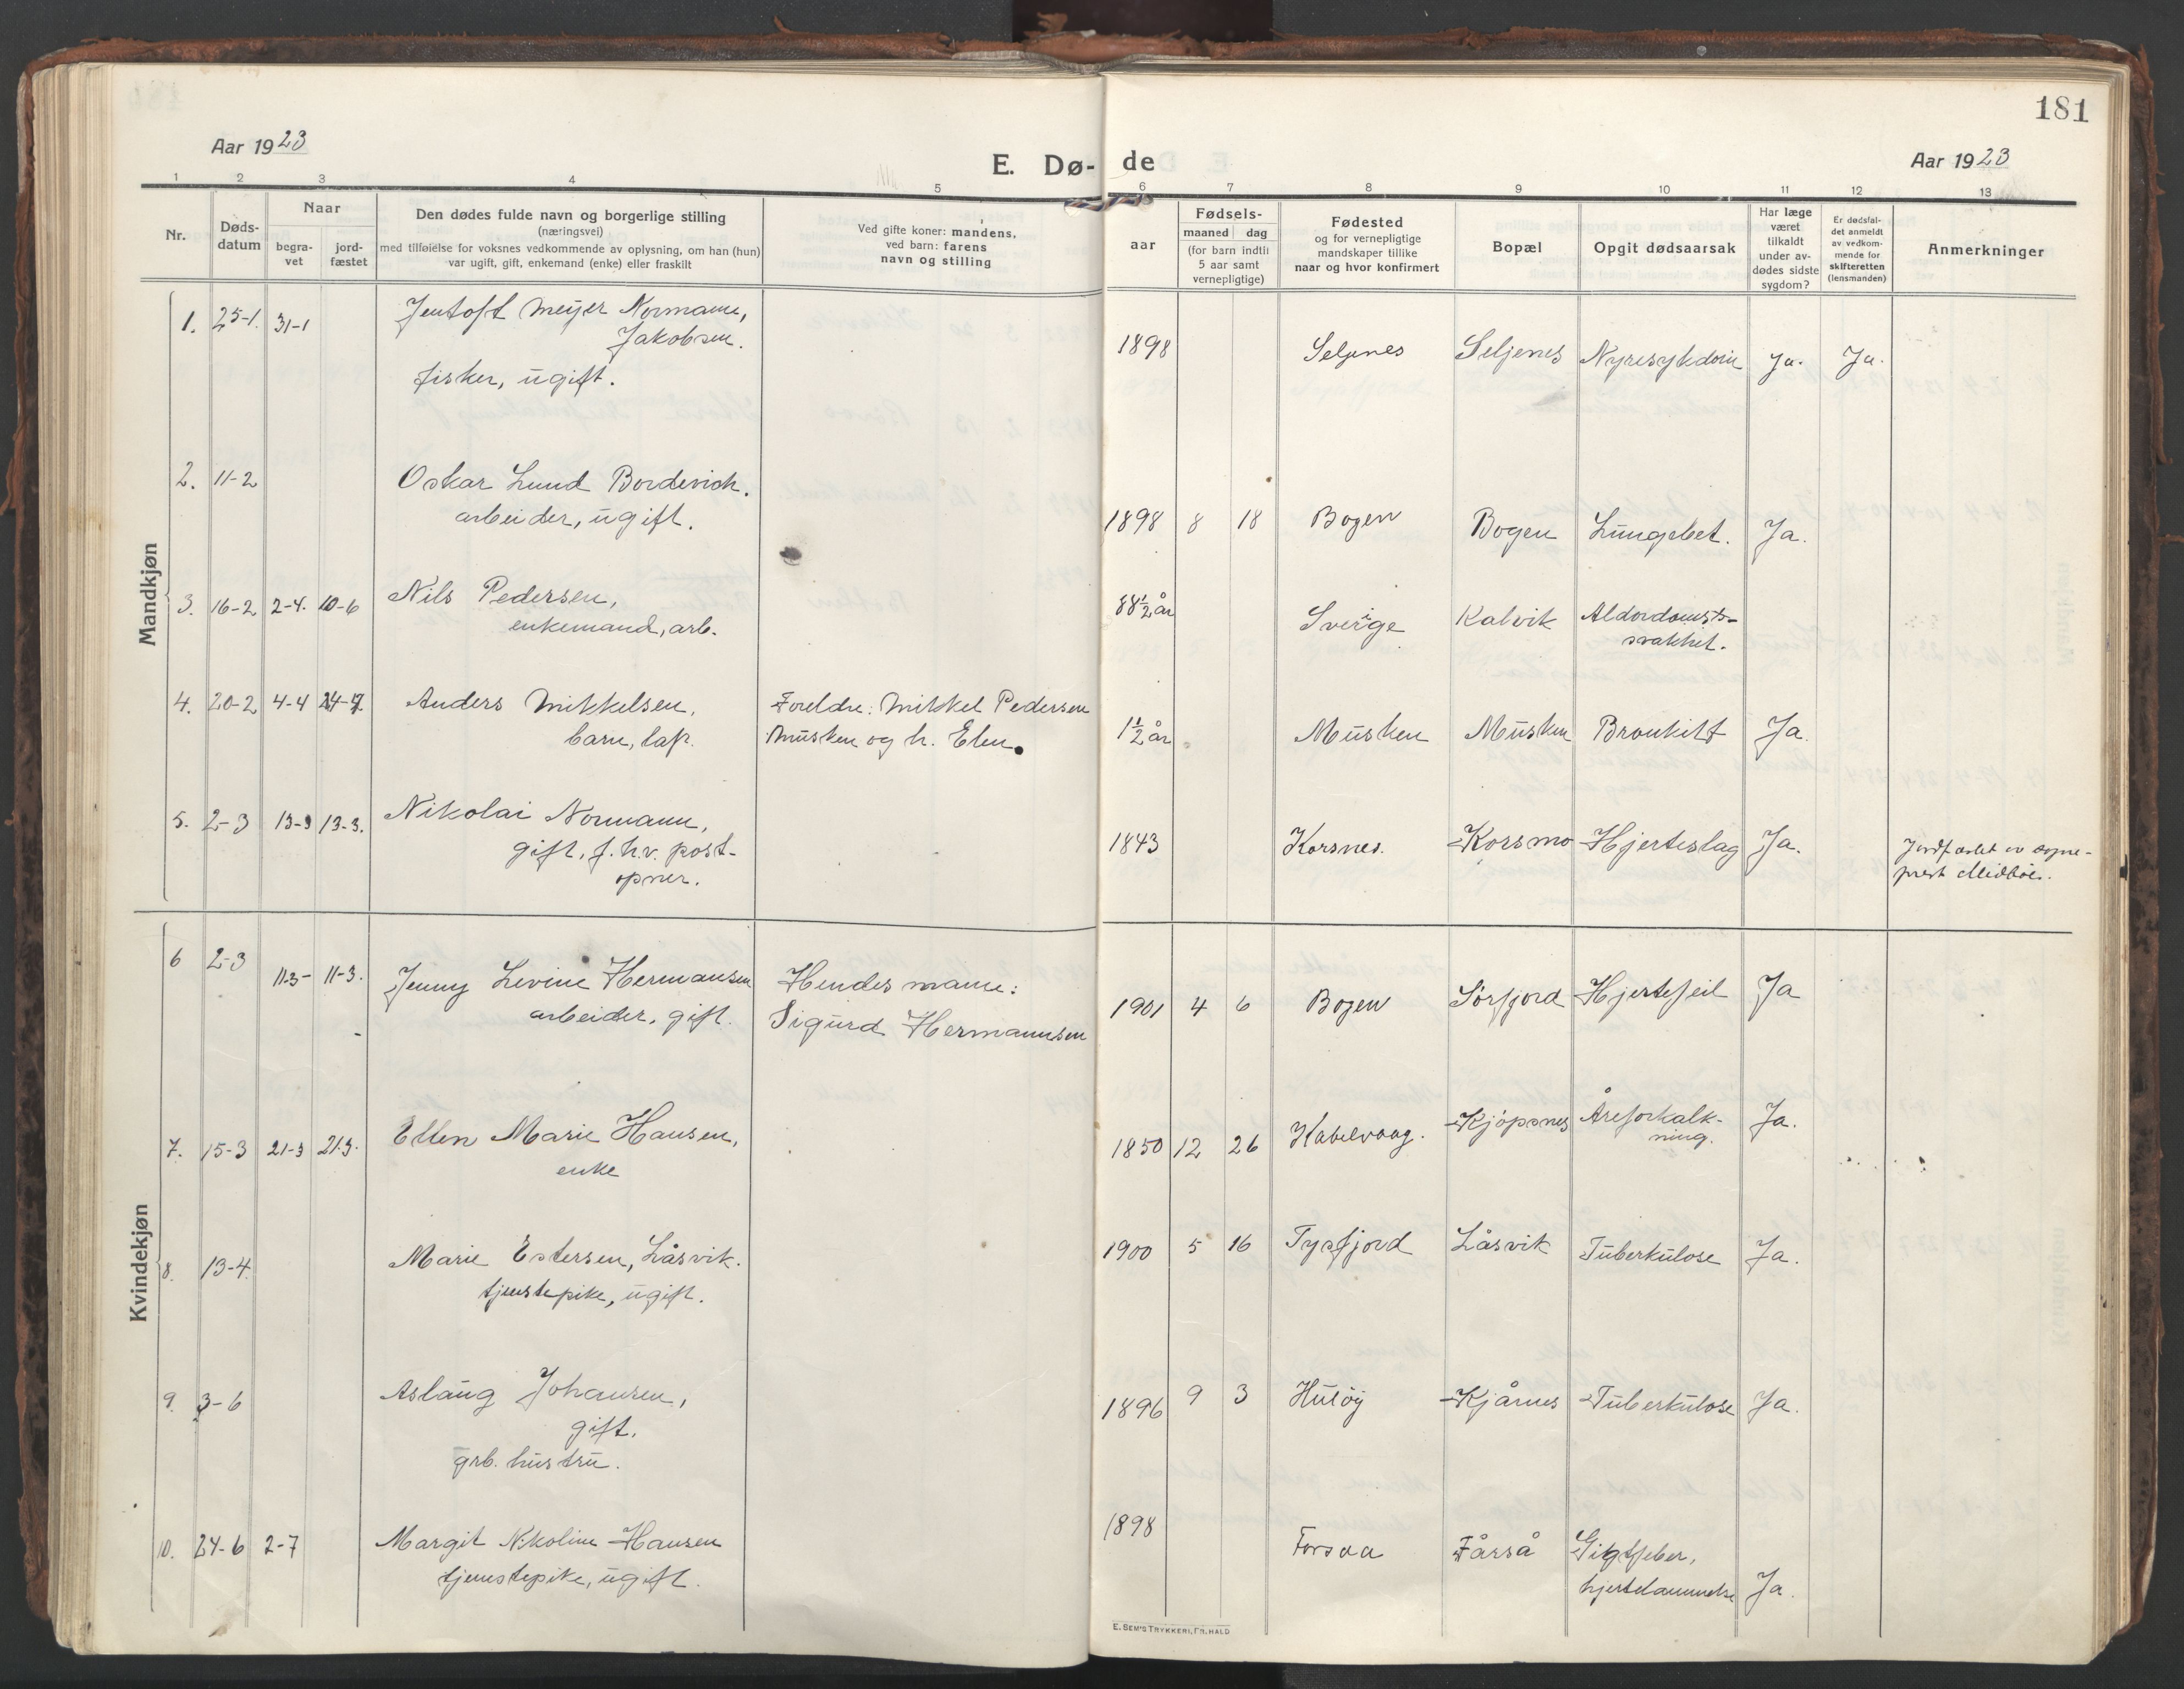 181
Aar 1923
E. Dø- de
Aar 1923
1 2 3 4 5 6 7 8 9 10 11 12 13
Nr.
Døds-
datum
Naar
begra-
vet
jord-
fæstet
Den dødes fulde navn og borgerlige stilling
(næringsvei)
med tilføielse for voksnes vedkommende av oplysning, om han (hun)
var ugift, gift, enkemand (enke) eller fraskilt
Ved gifte koner: mandens,
ved barn: farens
navn og stilling
aar
Fødsels-
maaned dag
(for barn indtil
5 aar samt
vernepligtige)
Fødested
og for vernepligtige
mandskaper tillike
naar og hvor konfirmert
Bopæl
Opgit dødsaarsak
Har læge
været
tilkaldt
under av-
dødes sidste
sygdom?
Er dødsfal-
det anmeldt
av vedkom-
mende for
skifteretten
(lensmanden)
Anmerkninger
Mandkjøn
1. 25-1. 31-1 Jentoft Meyer Normann,
Jakobsen.
fisker, ugift.
1898 Seljenes Seljenes Nyresykdom Ja. Ja.
2. 11-2 Oskar Lund Bordevich.
arbeider, ugift.
1898 8 18 Bogen Bogen Lungebet. Ja.
3. 16-2 2-4. 10-6 Nils Pedersen,
enkemand, arb.
88½ år Sverige Kalvik Alderdoms-
svakhet.
4. 20-2 4-4 Anders Mikkelsen,
barn, lap.
Foreldre: Mikkel Pedersen
Musken og h. Elen.
1½ år Musken Musken Bronkitt Ja.
5. 2-3 13-3 13-3. Nikolai Normann,
gift, f.h.v. post-
opner.
1843 Korsnes. Korsmo Hjerteslag Ja.
Jordfæstet av sogne-
prest Midbøe.
Kvindekjøn
6 2-3 11-3- 11-3. Jenny Levine Hermansen
arbeider, gift.
Hendes mann:
Sigurd Hermannsen
1901 4 6 Bogen Sørfjord Hjertefeil Ja
7. 15-3 21-3 21-3. Ellen Marie Hansen,
enke
1850 12 26 Kabelvaag. Kjøpsnes Åreforkalk-
ning. Ja.
8. 13-4. Marie Estersen, Låsvik.
tjenstepike, ugift.
1900 5 16 Tysfjord Låsvik Tuberkulose Ja.
9. 3-6 Aslaug Johansen,
gift.
grb. hustru.
1896 9 3 Huløy Kjårnes Tuberkulose Ja.
10. 24-6 2-7 Margit Nikoline Hansen
tjenestepike, ugift.
1898 Forsaa Fårså Gigtfeber,
hjertelammelse Ja.
E. SEM'S TRYKKERI, FR.HALD